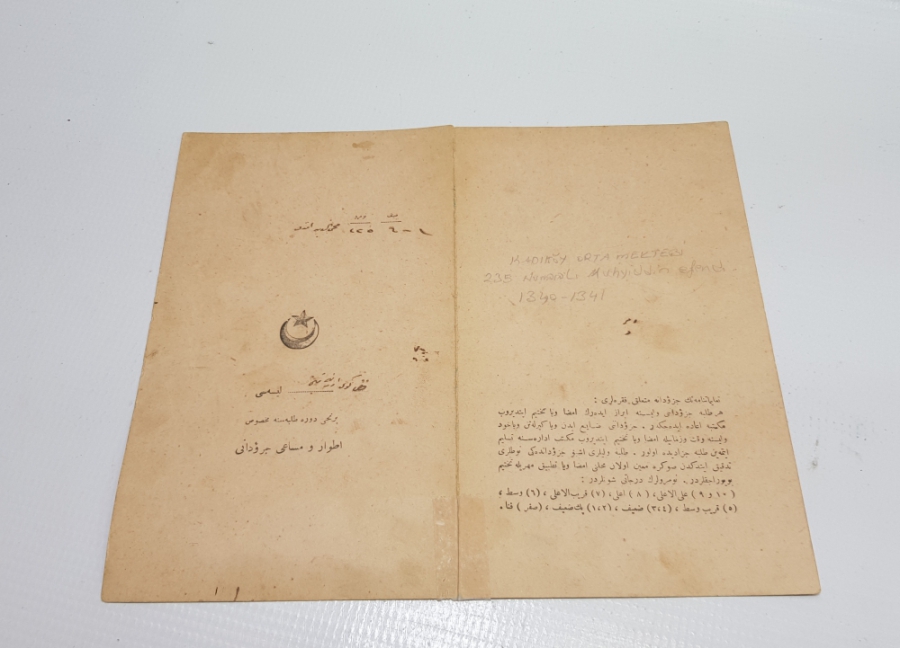 ۲۳۵
لیسه‌سی
برنجی دوره طلبه‌سنه مخصوص
اطوار و مساعی جزودانی
KADIKÖY ORTA MEKTEBİ
235 Numaralı Muhyiddin efendi
1340-1341
تعلیماتنامه‌نك جزودانه متعلق فقره‌لری :
هر طلبه جزودانی ولیسنه ابراز ایده‌رك امضا ویا تختیم ایتدیروب
مكتبه اعاده ایده‌جكدر . جزودانی ضایع ایدن ویا كیرلتن ویاخود
ولیسنه وقت وزمانیله امضا ویا تختیم ایتدیروب مكتب اداره‌سنه تسلیم
ایتمه‌ین طلبه جزادیده اولور . طلبه ولیلری اشبو جزودانده‌كی نوطلری
تدقیق ایتدكدن صوكره معین اولان محلی امضا ویا تطبیق مهر ایله تختیم
بویوراجقلردر . نومرولرك درجاتی شونلردر :
( ۱۰ و ۹ ) علی الاعلی ، ( ۸ ) اعلی ، (۷) قریب الاعلی ، (۶) وسط ،
(۵) قریب وسط ، (۳،٤) ضعیف ، (۱،۲) پك ضعیف ، ( صفر ) فنا .